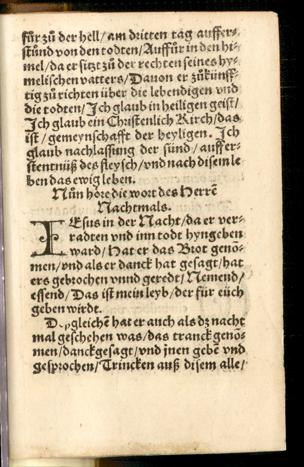 für zů der hell/am dritten tag auffers-
stůnd von den todten/Auffůr in den hi-
mel/da er sitzt zů der rechten seines hy-
melischen vatters/Danon er zůkünff-
tig zů richten über die lebendigen vnd
die todten/Ich glaub in heiligen geist/
Ich glaub ein Christenlich Kirch/das
ist/gemeynschafft der heyligen. Ich
glaub nachlassung der sünd/auffer-
stentnüß des fleysch/vnd nach disem le
ben das ewig leben.
Nůn höre die wort des Herrẽ
Nachtmals.
IEsus in der Nacht/da er ver-
radten vnd inn todt hyngeben
ward/Hat er das Brot genõ-
men/vnd als er danck hat gesagt/hat
ers gebrochen vnnd geredt/Nemend/
essend/Das ist mein leyb/der für eüch
geben wirdt.
gleichẽ hat er auch als dz nacht
mal geschehen was/das tranck genõ-
men/danckgesagt/vnd jnen gebẽ vnd
gesprochen/Trincken auß disem alle/